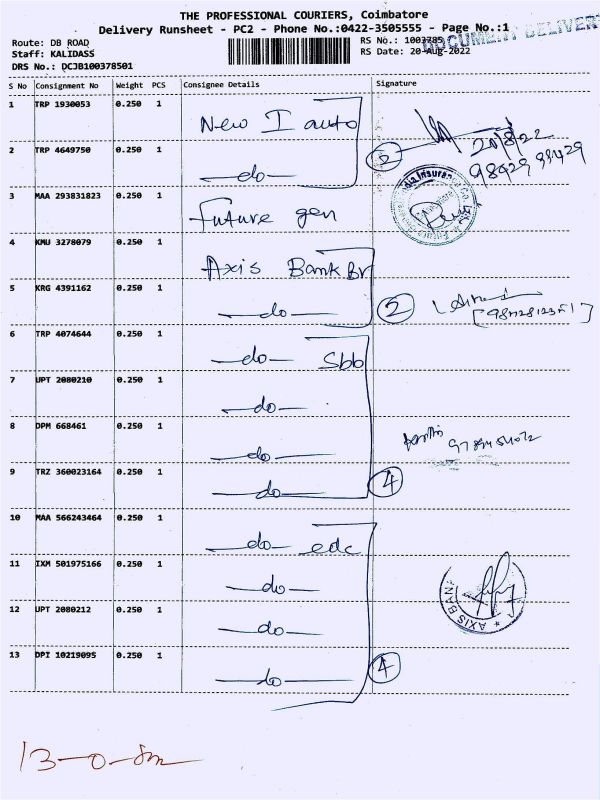 THE PROFESSIONAL COURIERS, Coimbatore
Delivery Runsheet - PC2 - Phone No.:0422-3505555 - Page No.:1
DOCUMENT DELIVER
Route: DB ROAD
RS No.: 1003785
Staff: KALIDASS
RS Date: 20-Aug-2022
DRS No.: DCJB100378501
S No Consignment No Weight PCS Consignee Details Signature
1 TRP 1930053 0.250 1 New I auto
20/8/22
2 TRP 4649750 0.250 1 —do— 2
98429 98429
3 MAA 293831823 0.250 1 Future gen
4 KMU 3278079 0.250 1 Axis Bank Br
5 KRG 4391162 0.250 1 —do— 2
6 TRP 4074644 0.250 1 —do— Sbb
7 UPT 2080210 0.250 1 —do—
8 DPM 668461 0.250 1 —do—
9 TRZ 360023164 0.250 1 —do— 4
10 MAA 566243464 0.250 1 —do— edc
11 IXM 501975166 0.250 1 —do—
12 UPT 2080212 0.250 1 —do—
AXIS BAN
13 DPI 10219095 0.250 1 —do— 4
13-0-